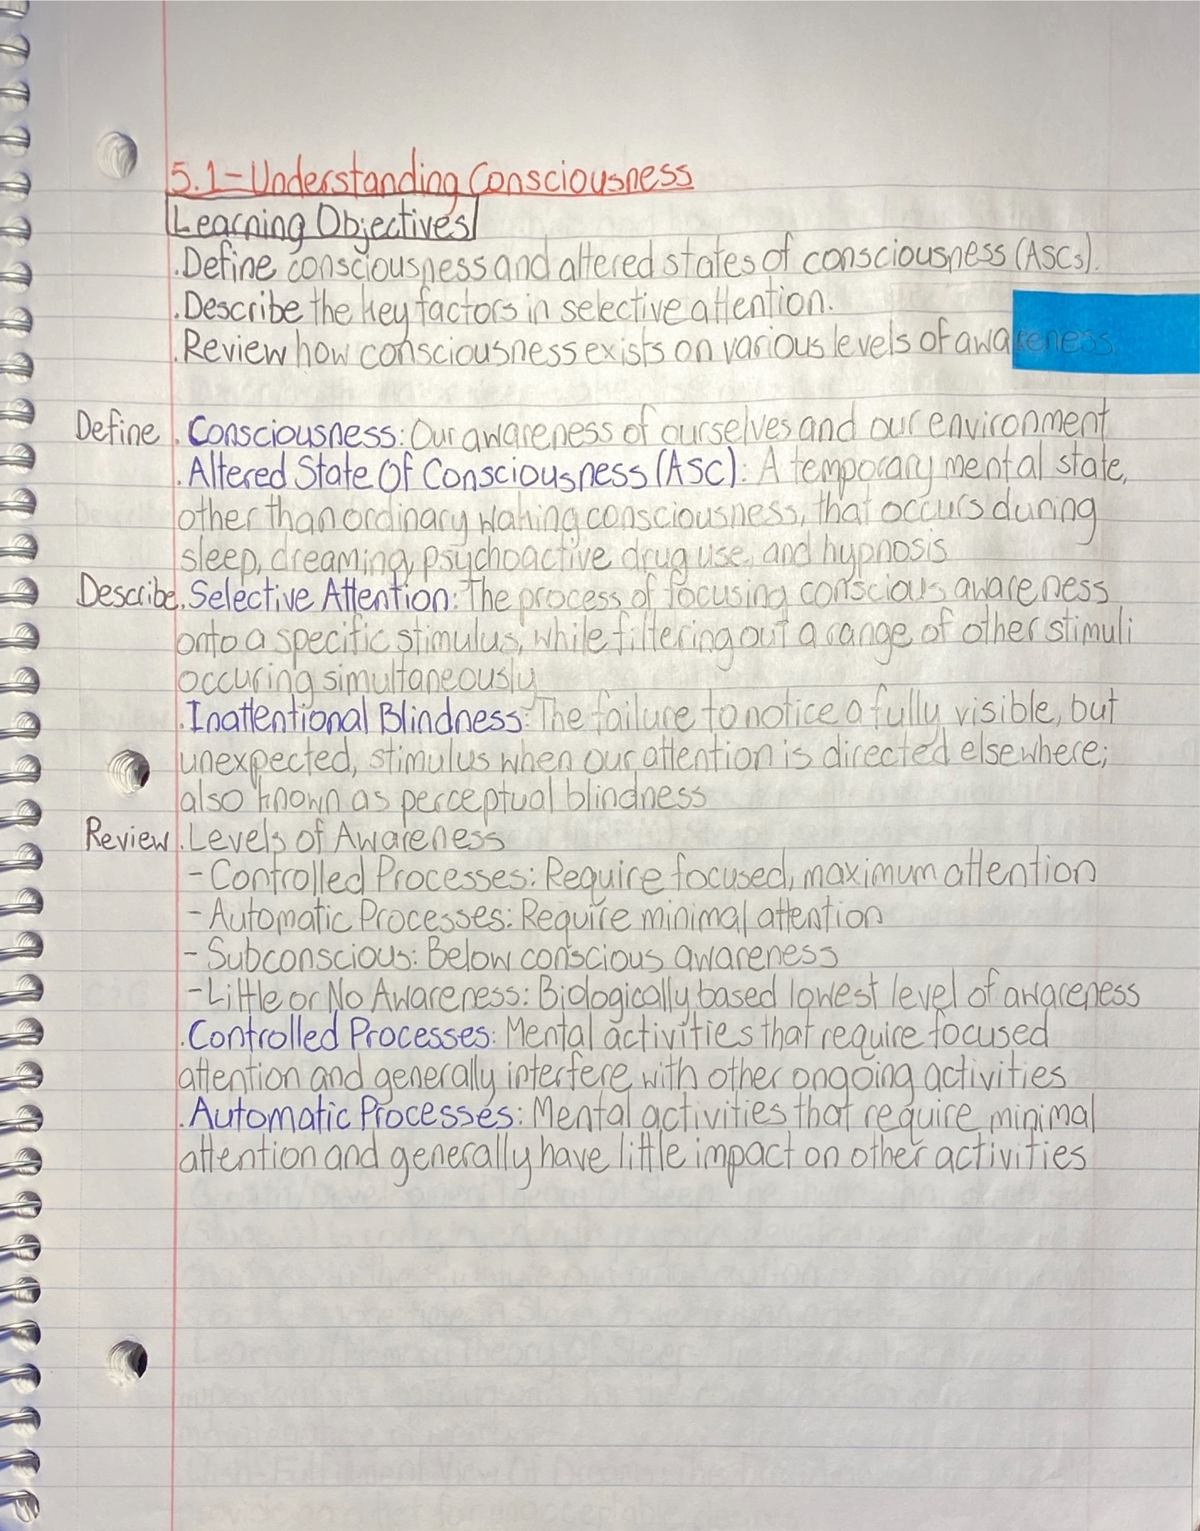 5.1-Understanding Consciousness
Learning Objectives
.Define consciousness and altered states of consciousness (ASCs).
.Describe the key factors in selective attention.
.Review how consciousness exists on various levels of awareness.
Define . Consciousness: Our awareness of ourselves and our environment
.Altered State Of Consciousness (ASC): A temporary mental state,
other than ordinary waking consciousness, that occurs during
sleep, dreaming, psychoactive drug use, and hypnosis
Describe . Selective Attention: The process of focusing conscious awareness
onto a specific stimulus, while filtering out a range of other stimuli
occuring simultaneously
.Inattentional Blindness: The failure to notice a fully visible, but
unexpected, stimulus when our attention is directed elsewhere;
also known as perceptual blindness
Review . Levels of Awareness
- Controlled Processes: Require focused, maximum attention
- Automatic Processes: Require minimal attention
- Subconscious: Below conscious awareness
- Little or No Awareness: Biologically based lowest level of awareness
.Controlled Processes: Mental activities that require focused
attention and generally interfere with other ongoing activities
.Automatic Processes: Mental activities that require minimal
attention and generally have little impact on other activities